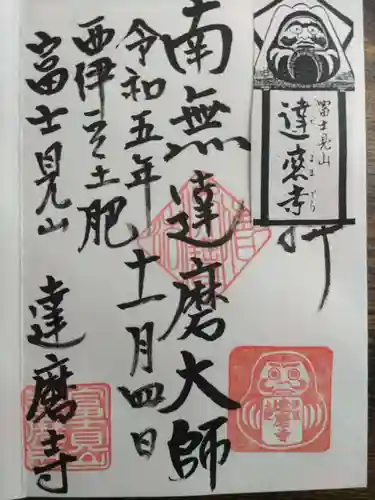 富士見山
達磨寺
だるまでら
南無達磨大師
令和五年十一月四日
西伊豆土肥
富士見山 達磨寺
富士見山
達磨寺